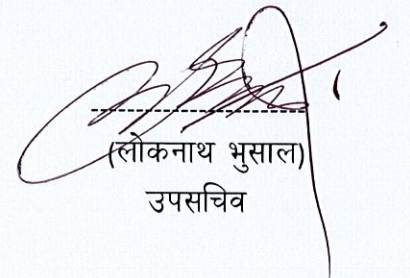 (लोकनाथ भुसाल)
उपसचिव